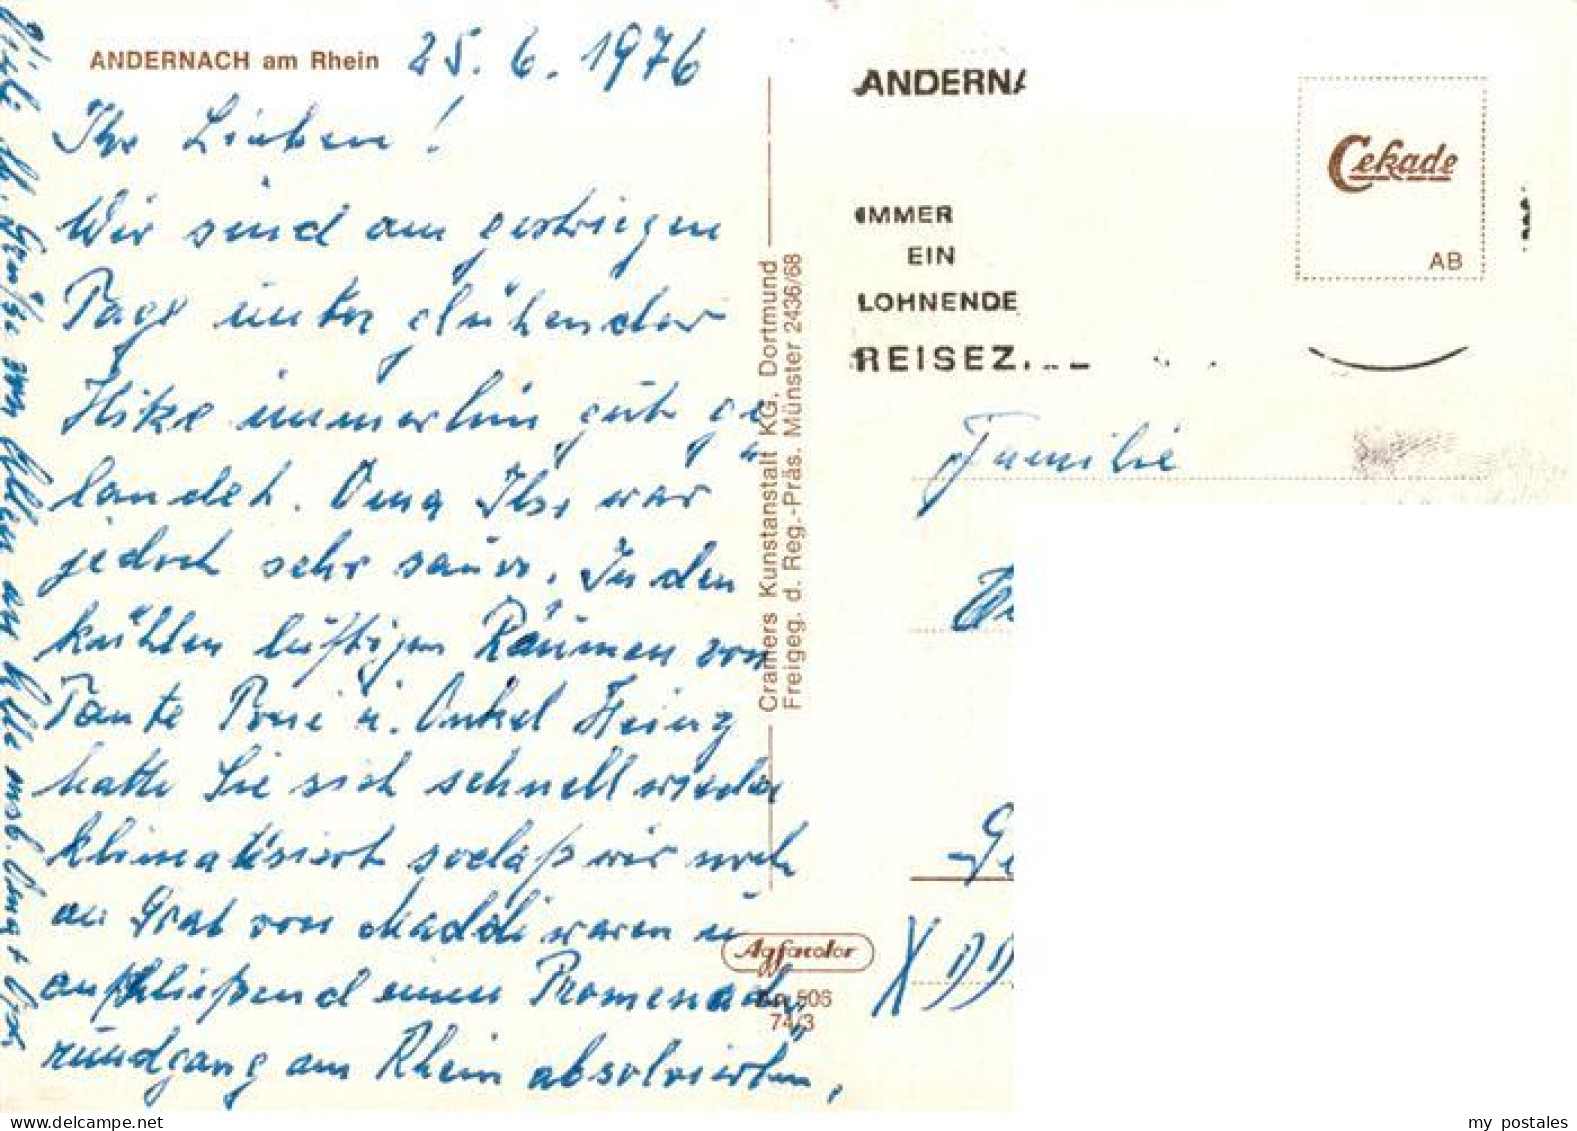 ANDERNACH am Rhein 25. 6. 1976
Ihr Lieben!
Wir sind am gestrigen
Tage unter glühender
Hitze immerhin gut ge
landet. Oma Ilse war
jedoch sehr sauer. In den
kühlen luftigen Räumen von
Tante Toni u. Onkel Heinz
hatte Sie sich schnell wieder
klimatisiert sodaß wir noch
am Grab von Maddi waren u
anschließend einen Promenaden
rundgang am Rhein absolvierten.
Viele lb. Grüße von Allen an Alle
Oma + Opa
Cramers Kunstanstalt KG, Dortmund
Freigeg. d. Reg.-Präs. Münster 2436/68
Agfacolor
506
74/3
ANDERNA
IMMER
EIN
LOHNENDE
REISEZ
Cekade
AB
Familie
X DD
my postales